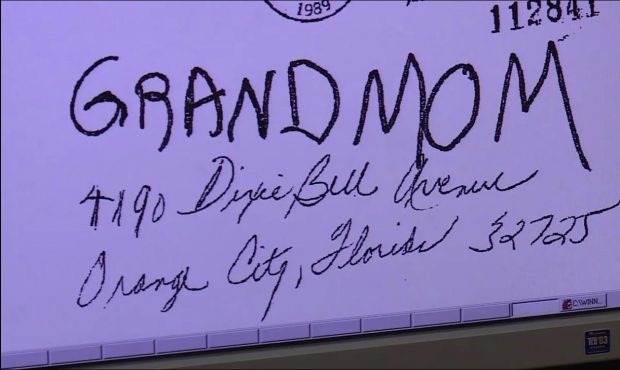 1989
112841
GRANDMOM
4190 Dixie Bell Avenue
Orange City, Florida 32725
C:\WINN...
TCO'03